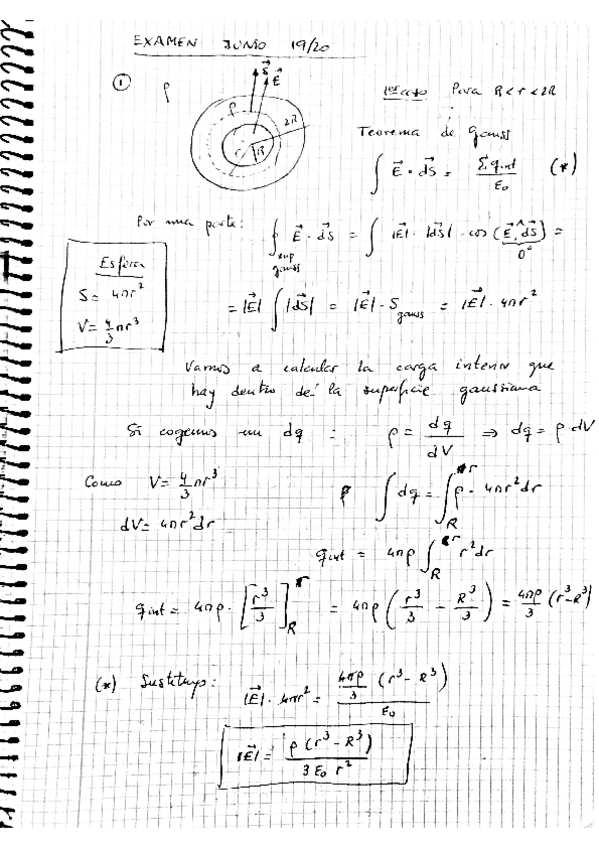 EXAMEN JUNIO 19/20
① ρ
S⃗ E⃗
ρ 2R
r R
1er caso Para R < r < 2R
Teorema de Gauss
∫ E⃗ · dS⃗ = Σ q int / ε₀ (*)
Por una parte: ∮ sup gauss E⃗ · dS⃗ = ∫ |E⃗| · |dS⃗| · cos (E⃗, dS⃗) =
0°
Esfera
S = 4πr²
V = 4/3 πr³
= |E⃗| ∫ |dS⃗| = |E⃗| · S gauss = |E⃗| · 4πr²
Vamos a calcular la carga interior que
hay dentro de la superficie gaussiana
Si cogemos un dq : ρ = dq / dV ⇒ dq = ρ dV
Como V = 4/3 πr³
∫ dq = ∫_R^r ρ · 4πr² dr
dV = 4πr² dr
q int = 4πρ ∫_R^r r² dr
q int = 4πρ · [r³/3]_R^r = 4πρ (r³/3 - R³/3) = 4πρ/3 (r³-R³)
(*) Sustituyo: |E⃗| · 4πr² = 4πρ/3 (r³ - R³) / ε₀
|E⃗| = ρ (r³ - R³) / 3 ε₀ r²